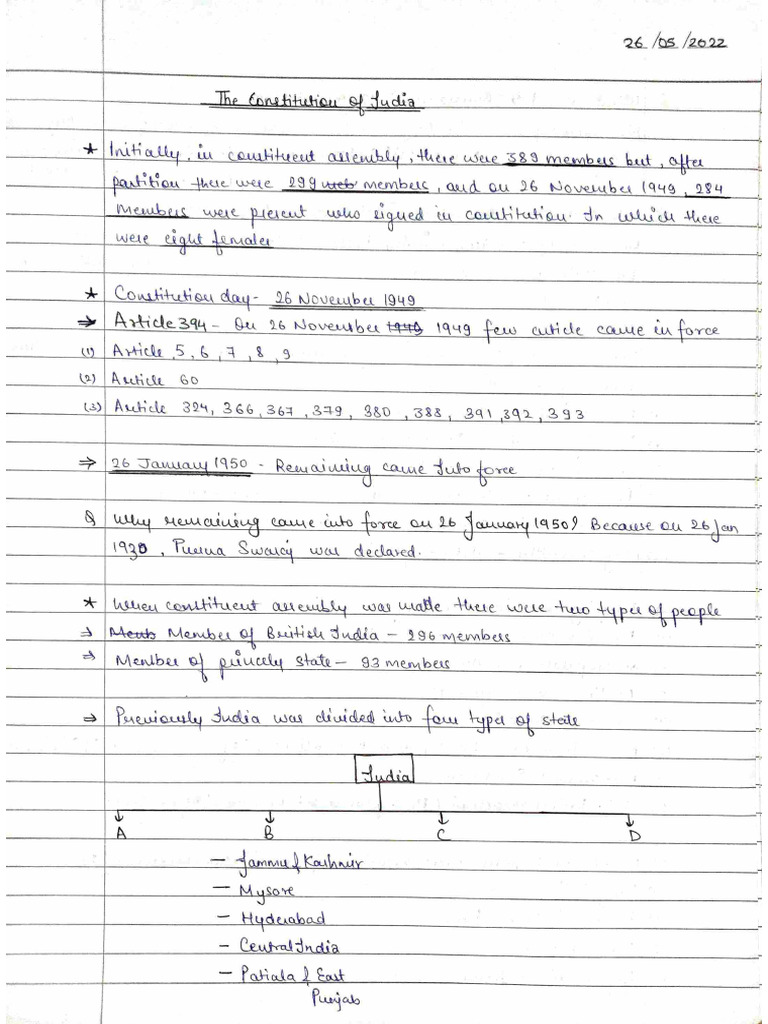 26/05/2022
The Constitution of India
* Initially, in constituent assembly, there were 389 members but, after
partition there were 299 members, and on 26 November 1949, 284
members were present who signed in constitution. In which there
were eight females
* Constitution day - 26 November 1949
⇒ Article 394 - On 26 November 1949 few article came in force
(1) Article 5, 6, 7, 8, 9
(2) Article 60
(3) Article 324, 366, 367, 379, 380, 388, 391, 392, 393
⇒ 26 January 1950 - Remaining came Into force
Q Why remaining came into force on 26 January 1950? Because on 26 Jan
1930, Purna Swaraj was declared.
* When constituent assembly was made there were two types of people
⇒ Member of British India - 296 members
⇒ Member of princely state - 93 members
⇒ Previously India was divided into four types of state
India
A B C D
- Jammu & Kashmir
- Mysore
- Hyderabad
- Central India
- Patiala & East
Punjab